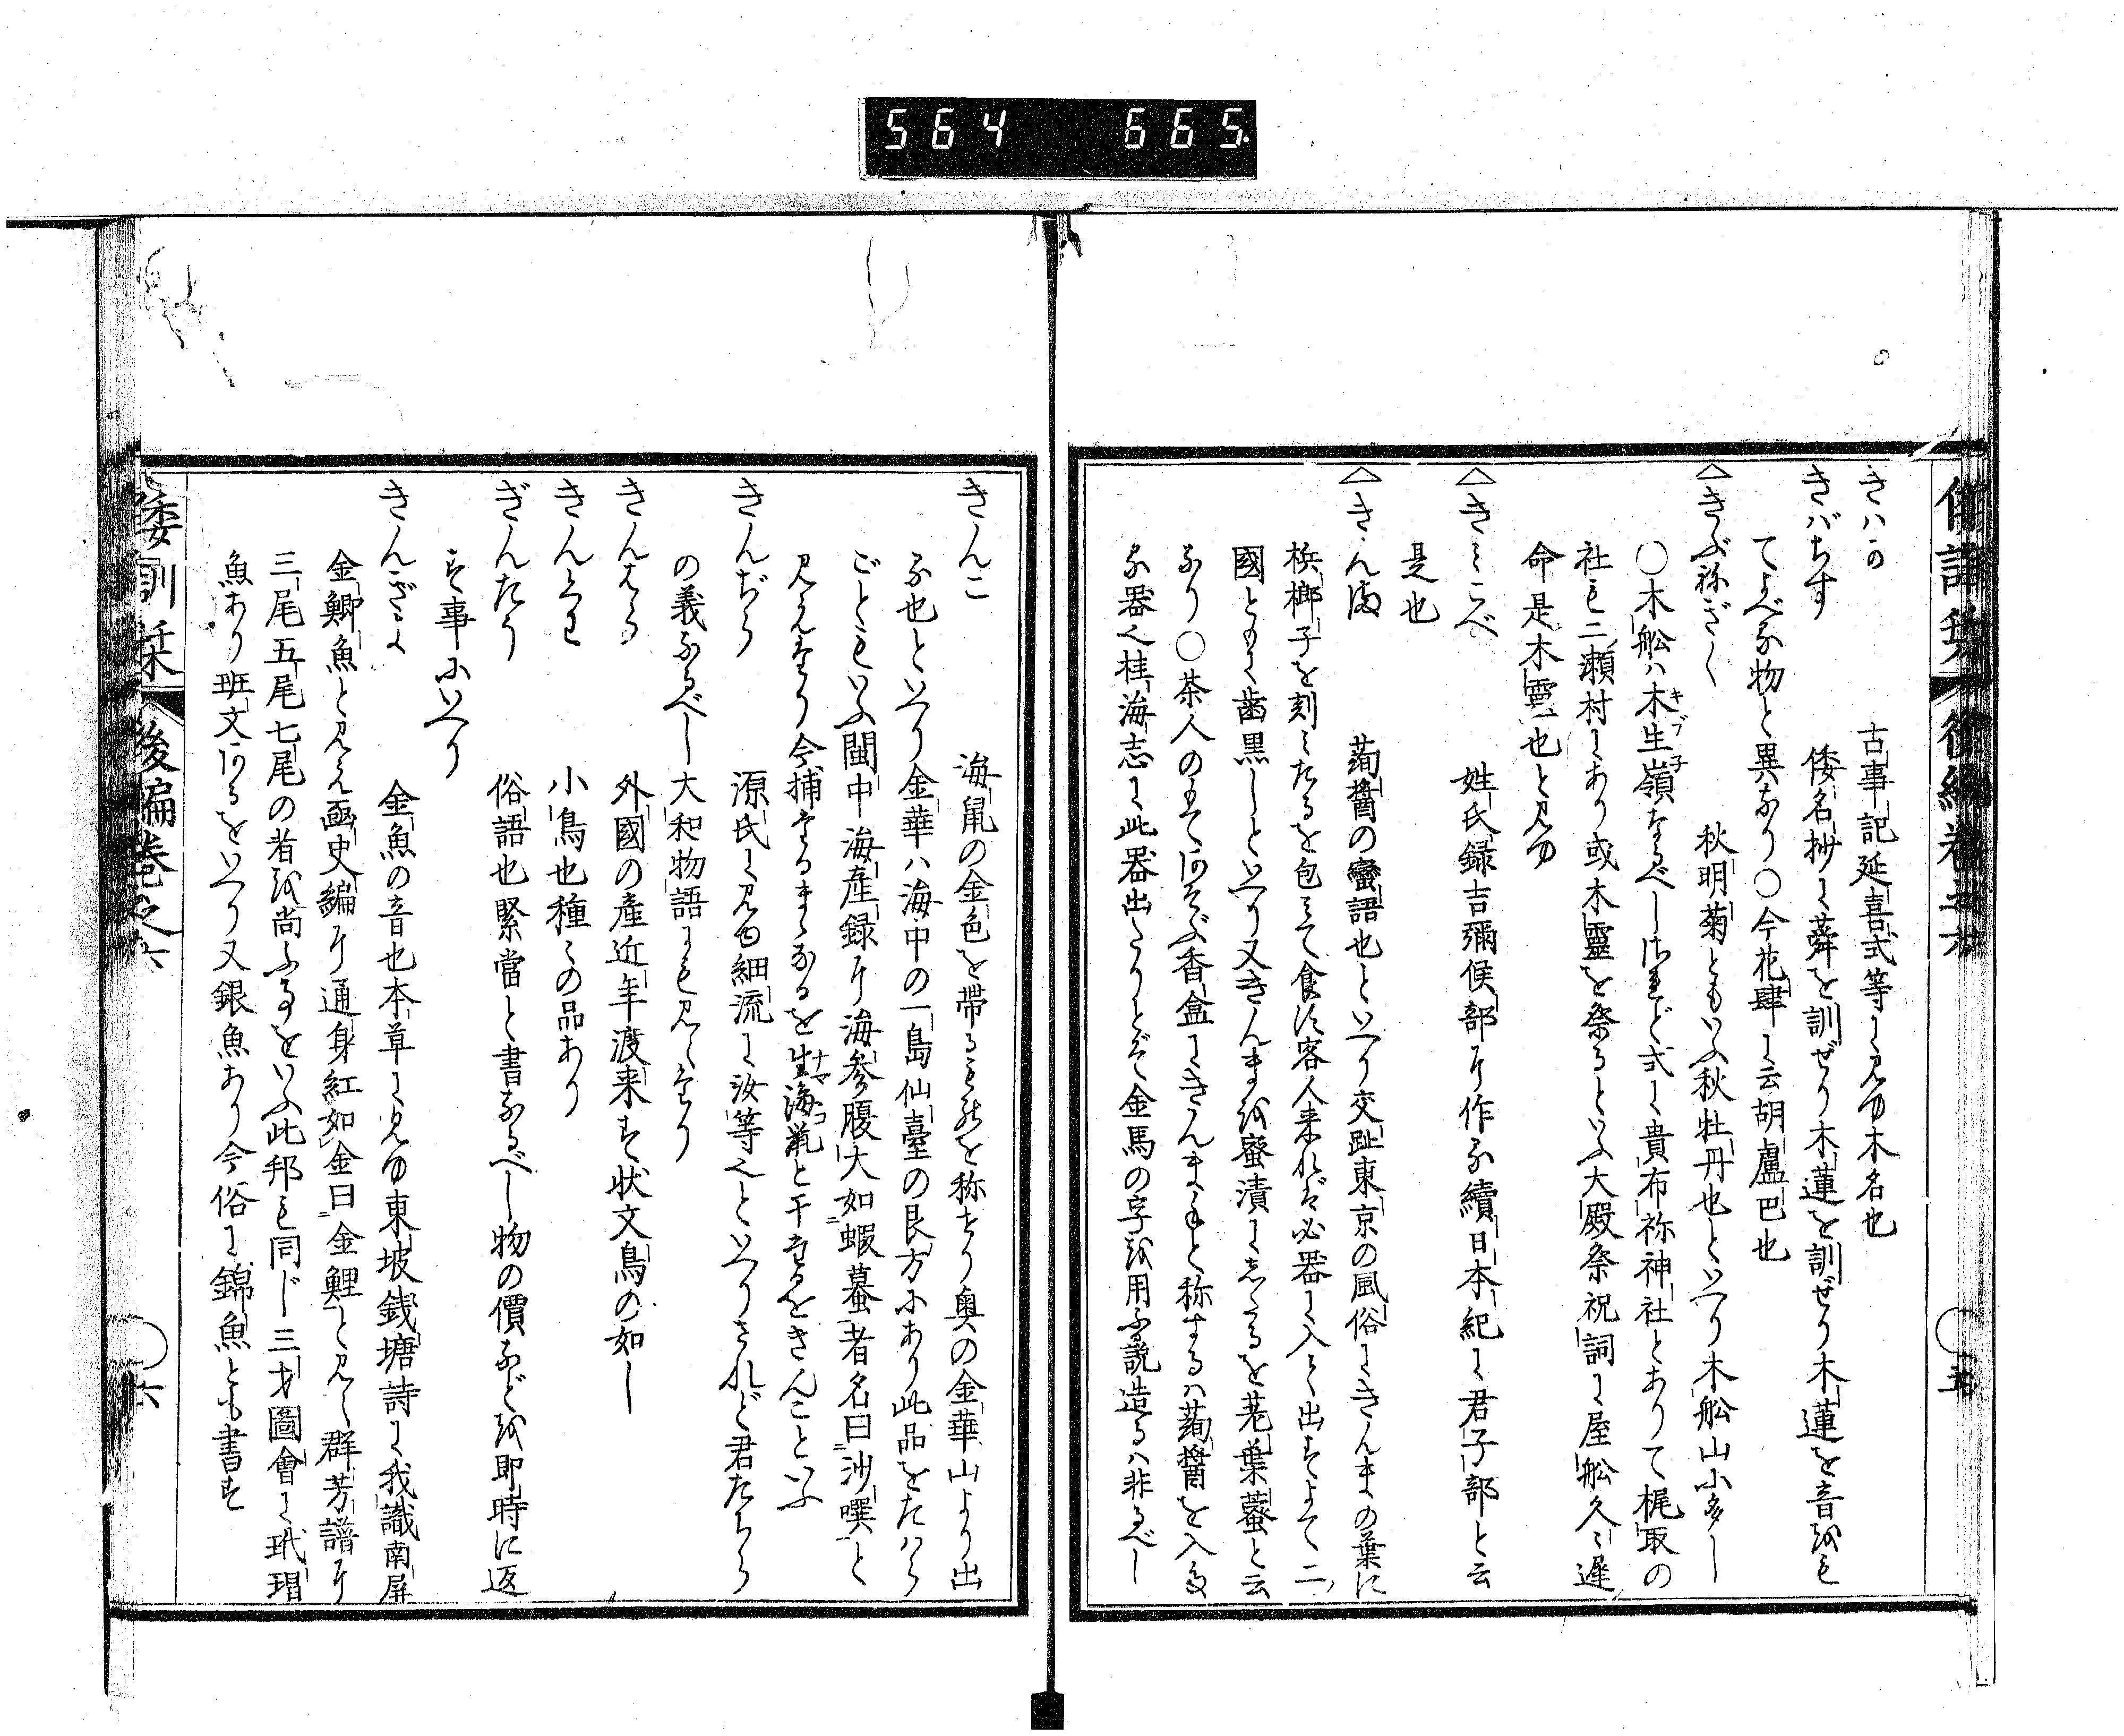 564 665
きハか 古事記延喜式等に見ゆ木名也
きバちす 倭名抄に蕣を訓ぜり木蓮を訓ぜり木蓮を音をも
てよべる物と異なり〇今花肆に云胡盧巴也
△きぶ祢ぎく 秋明菊ともいふ秋牡丹也といへり木舩山に多し
〇木舩ハ木生嶺なるべしされど式に貴布祢神社とありて梶取の
キブ子
社も二瀬村にあり或木靈を祭るといふ大殿祭祝詞に屋舩久々遲
命是木靈也と見ゆ
△きミこべ 姓氏録吉彌侯部に作る續日本紀に君子部と云
是也
△きんま 蒟醬の蠻語也といへり交趾東京の風俗にきんまの葉に
檳榔子を刻ミたるを包ミて食ふ客人来れバ必器に入て出すよて二
國ともに歯黒しといへり又きんまを蜜漬にしたるを荖葉蔞と云
なり〇茶人のもてあそぶ香盒にきんま手と称するハ蒟醬を入た
る器也桂海志に此器出たりとぞ金馬の字を用る説造るハ非なるべし
きんこ 海鼠の金色を帶るものを称せり奥の金華山より出
る也といへり金華ハ海中の一島仙臺の艮方にあり此品をたハら
ごともいふ閩中海産録に海参腹大如蝦蟇者名曰沙噀と
見えたり今捕たるまゝなるを生海鼠と干たるをきんこといふ
ナマコ
きんぢら 源氏に見ゆ細流に汝等也といへりされど君たちら
の義なるべし大和物語にも見えたり
きんはら 外國の産近年渡来す状文鳥の如し
きんくろ 小鳥也種々の品あり
ぎんたう 俗語也緊當と書なるべし物の價などを即時に返
す事にいへり
きんぎよ 金魚の音也本草に見ゆ東坡銭塘詩に我識南屏
金鯽魚と見え凾史編に通身紅如金曰金鯉と見え群芳譜に
三尾五尾七尾の者を尚ふるをいふ此邦も同じ三才圖會に玳瑁
魚あり班文あるをいへり又銀魚あり今俗に錦魚とも書す
倭訓栞 後編巻之六 六